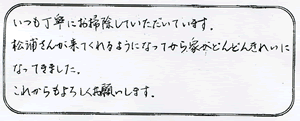 いつも丁寧にお掃除していただいています。
松浦さんが来てくれるようになってから家がどんどんきれいに
なってきました。
これからもよろしくお願いします。